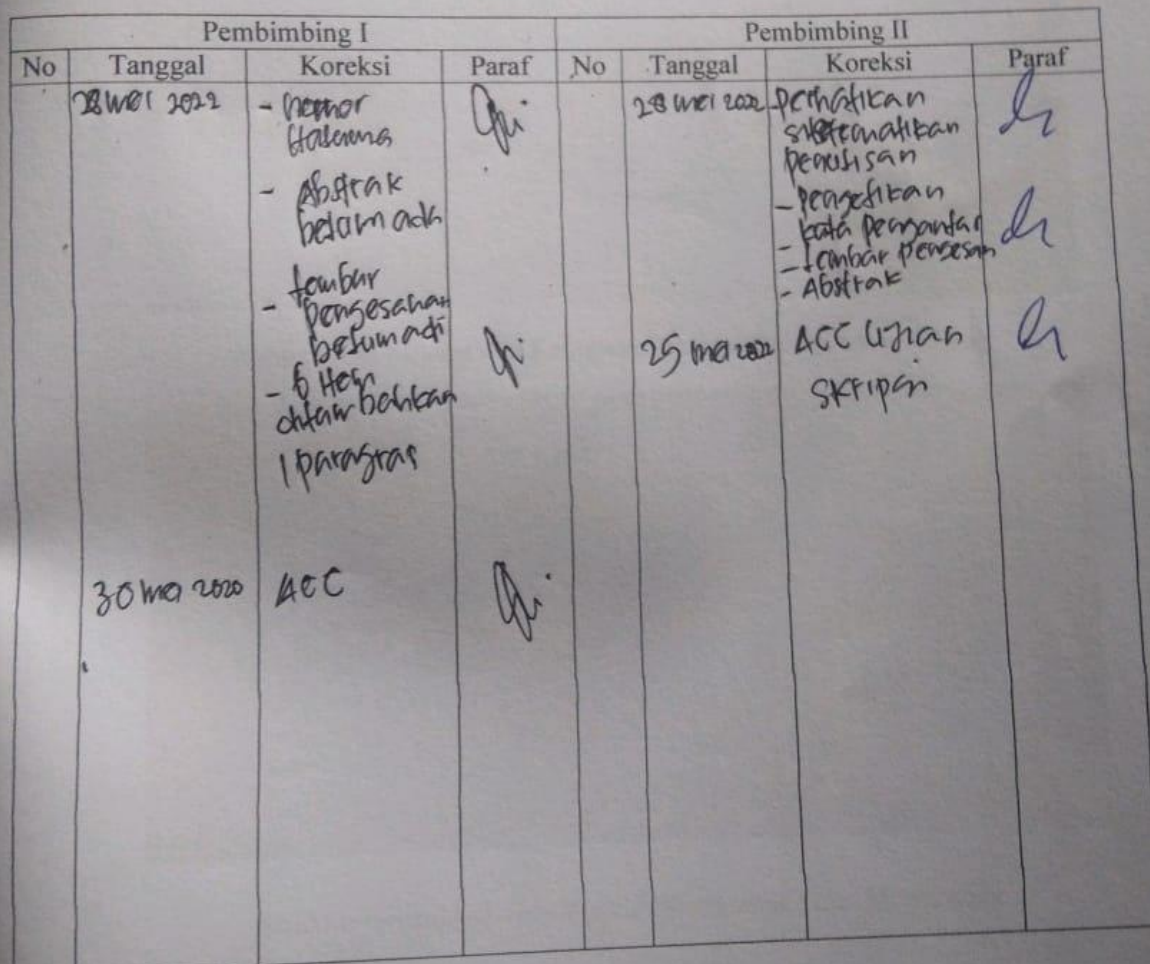 Pembimbing I
Pembimbing II
No Tanggal Koreksi Paraf No Tanggal Koreksi Paraf
28 mei 2022
- nomor
Halaman
- Abstrak
belum ada
lembar
- pengesahan
belum adi
- 6
ditambahkan
1 paragraf
30 mei 2020 ACC
28 mei 2022 perhatikan
sistematikan
penulisan
- pengetikan
- kata pengantar
- Lembar pengesan
- Abstrak
25 mei 2022 ACC Ujian
skripsi